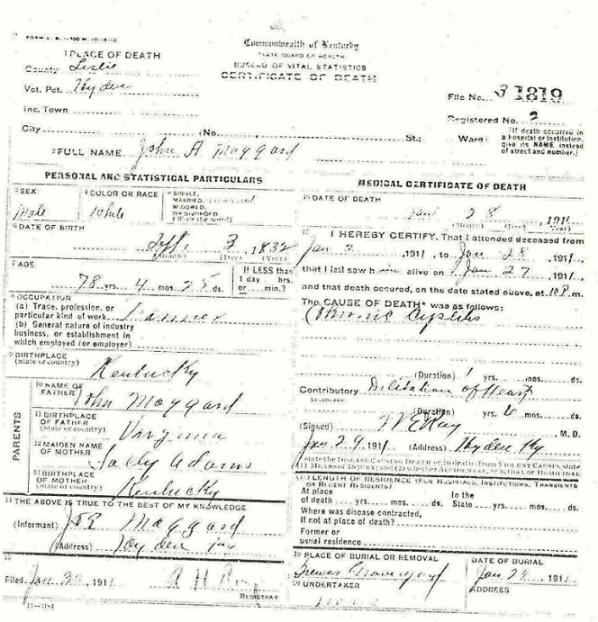 Commonwealth of Kentucky
STATE BOARD OF HEALTH
BUREAU OF VITAL STATISTICS
CERTIFICATE OF DEATH
1 PLACE OF DEATH
County Leslie
Vot. Pct. Hyden
Inc. Town
City (No. St.; Ward)
File No. 31819
Registered No. 2
[If death occurred in a Hospital or Institution, give its NAME instead of street and number.]
2 FULL NAME John A Maggard
PERSONAL AND STATISTICAL PARTICULARS
3 SEX
Male
4 COLOR OR RACE
White
5 SINGLE, MARRIED, WIDOWED, OR DIVORCED
(Write the word)
6 DATE OF BIRTH
Sept. 3, 1832
(Month) (Day) (Year)
7 AGE
78 yrs. 4 mos. 25 ds.
If LESS than 1 day hrs. or min.?
8 OCCUPATION
(a) Trade, profession, or particular kind of work Farmer
(b) General nature of industry business, or establishment in which employed (or employer)
9 BIRTHPLACE
(State or country) Kentucky
PARENTS
10 NAME OF FATHER John Maggard
11 BIRTHPLACE OF FATHER
(State or country) Virginia
12 MAIDEN NAME OF MOTHER Sally Adams
13 BIRTHPLACE OF MOTHER
(State or country) Kentucky
14 THE ABOVE IS TRUE TO THE BEST OF MY KNOWLEDGE
(Informant) Maggard
(Address) Hyden Ky
15
Filed Jan 191 A H
REGISTRAR
MEDICAL CERTIFICATE OF DEATH
16 DATE OF DEATH
Jan 28, 1911
(Month) (Day) (Year)
17 I HEREBY CERTIFY, That I attended deceased from
Jan 2 1911, to Jan 28, 1911,
that I last saw him alive on Jan 27, 1911,
and that death occured, on the date stated above, at 10 P m.
The CAUSE OF DEATH* was as follows:
Chronic Cystitis
(Duration) 1 yrs. mos. ds.
Contributory Dilitation of Heart
SECONDARY
(Duration) yrs. 6 mos. ds.
(Signed) M.D.
Jan 29, 1911 (Address) Hyden Ky
18 LENGTH OF RESIDENCE (FOR HOSPITALS, INSTITUTIONS, TRANSIENTS OR RECENT RESIDENTS)
At place of death yrs. mos. ds. In the State yrs. mos. ds.
Where was disease contracted, if not at place of death?
Former or usual residence
19 PLACE OF BURIAL OR REMOVAL
Graveyard
DATE OF BURIAL
Jan 29 1911
20 UNDERTAKER
ADDRESS